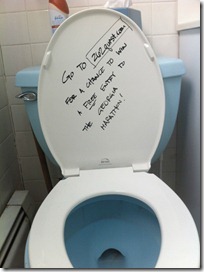 GO TO 262QUEST.COM
FOR A CHANCE TO WIN
A FREE ENTRY TO
THE GEORGIA
MARATHON!